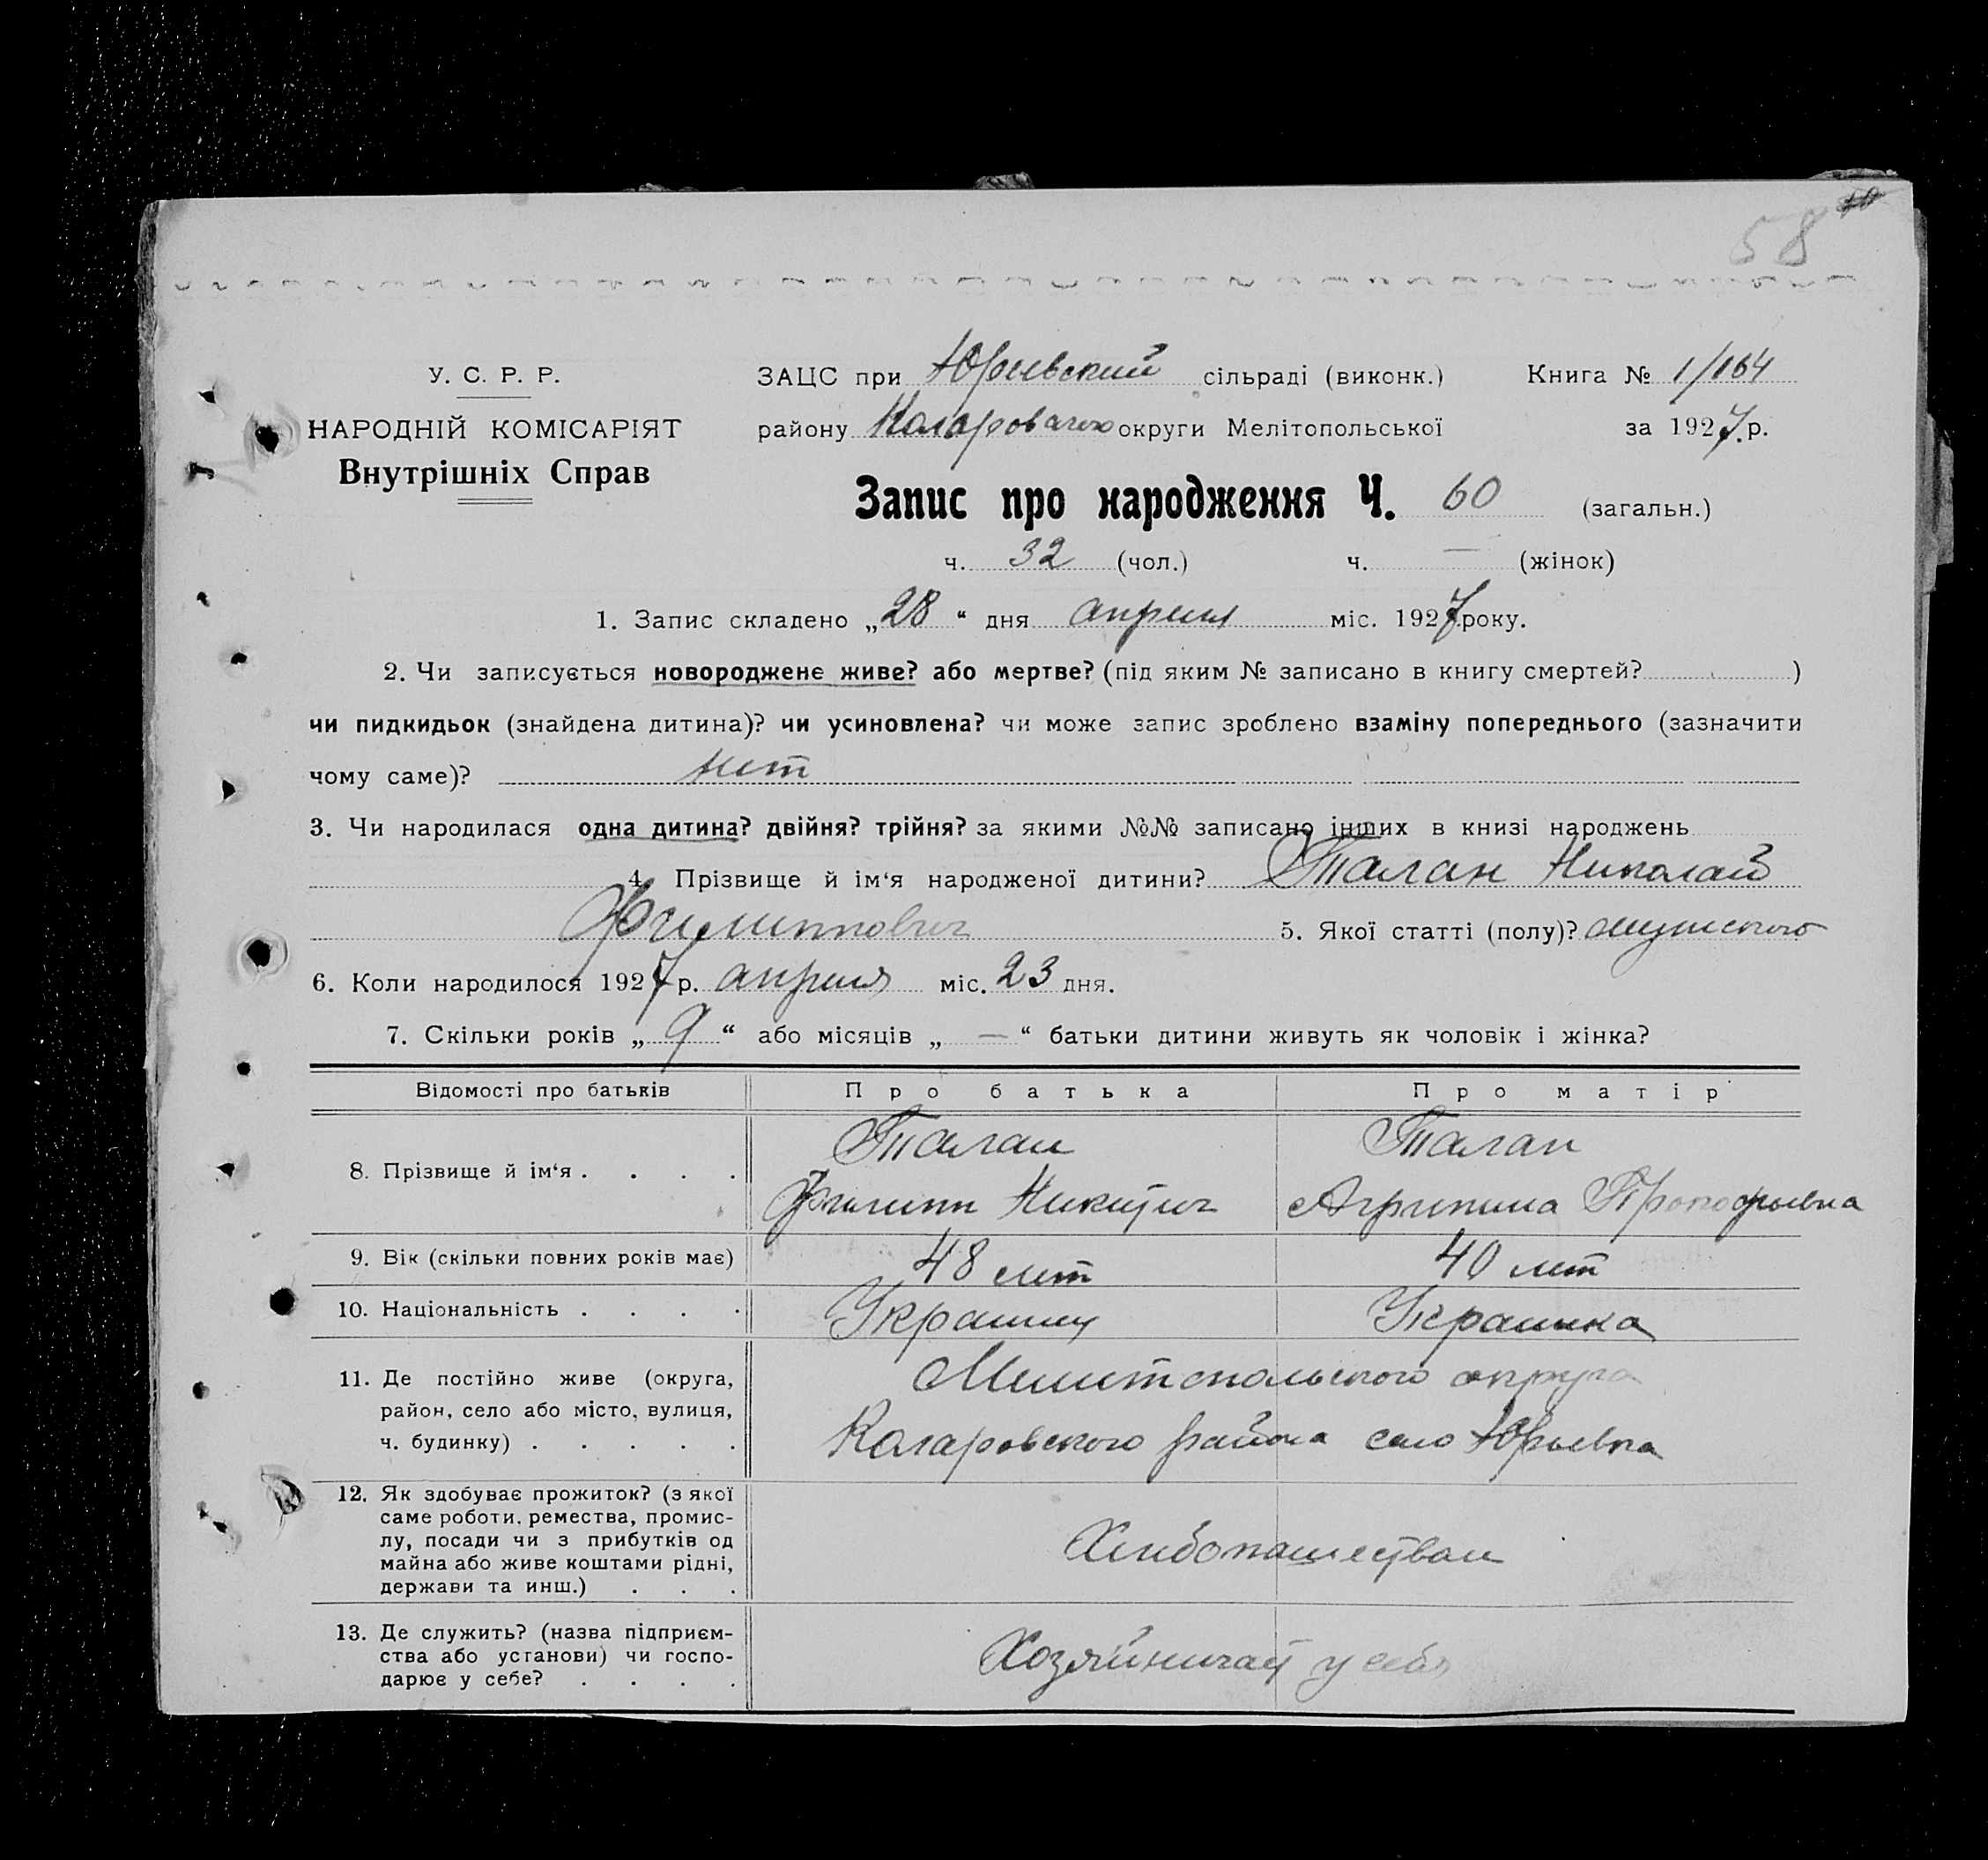 58
У. С. Р. Р.
НАРОДНІЙ КОМІСАРІЯТ
Внутрішніх Справ
ЗАЦС при Юрьевский сільраді (виконк.) Книга № 1/164
району Коларовского округи Мелітопольської за 1927 р.
Запис про народження Ч. 60 (загальн.)
ч. 32 (чол.) ч. — (жінок)
1. Запис складено „28“ дня апреля міс. 1927 року.
2. Чи записується новороджене живе? або мертве? (під яким № записано в книгу смертей? )
чи пидкидьок (знайдена дитина)? чи усиновлена? чи може запис зроблено взаміну попереднього (зазначити
чому саме)? нет
3. Чи народилася одна дитина? двійня? трійня? за якими №№ записано інших в книзі народжень
4. Прізвище й ім‘я народженої дитини? Талан Николай
Филиппович 5. Якої статті (полу)? мужского
6. Коли народилося 1927 р. апреля міс. 23 дня.
7. Скільки років „ 9 “ або місяців „ — “ батьки дитини живуть як чоловік і жінка?
Відомості про батьків Про батька Про матір
8. Прізвище й ім‘я . . . . Талан Талан
Филипп Никитич Агрипина Прокофьевна
9. Вік (скільки повних років має) 48 лет 40 лет
10. Національність . . . . Украинец Украинка
11. Де постійно живе (округа, Мелитопольского округа
район, село або місто, вулиця,
ч. будинку) . . . . . Коларовского района село Юрьевка
12. Як здобуває прожиток? (з якої
саме роботи, ремества, промис-
лу, посади чи з прибутків од
майна або живе коштами рідні, Хлебопашеством
держави та инш.) . . .
13. Де служить? (назва підприєм-
ства або установи) чи госпо- Хозяйничает у себя
дарює у себе? . . . .